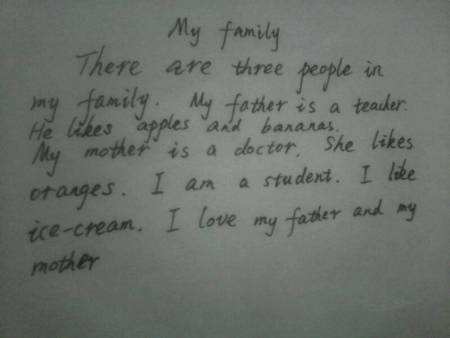 My family
There are three people in
my family. My father is a teacher.
He likes apples and bananas.
My mother is a doctor. She likes
oranges. I am a student. I like
ice-cream. I love my father and my
mother